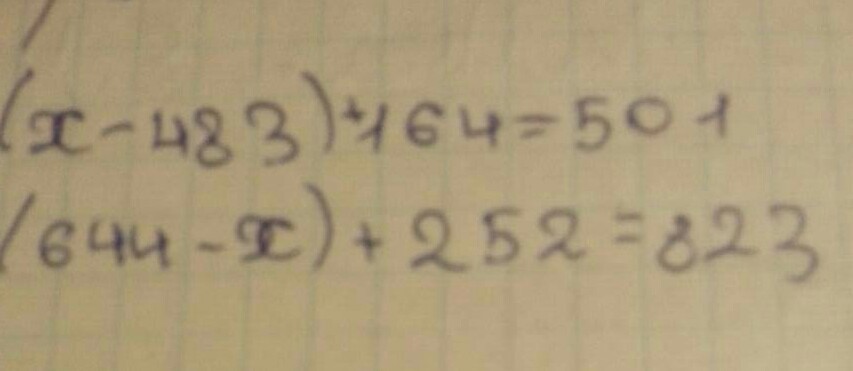 (x-483)+164=501
(644-x)+252=823